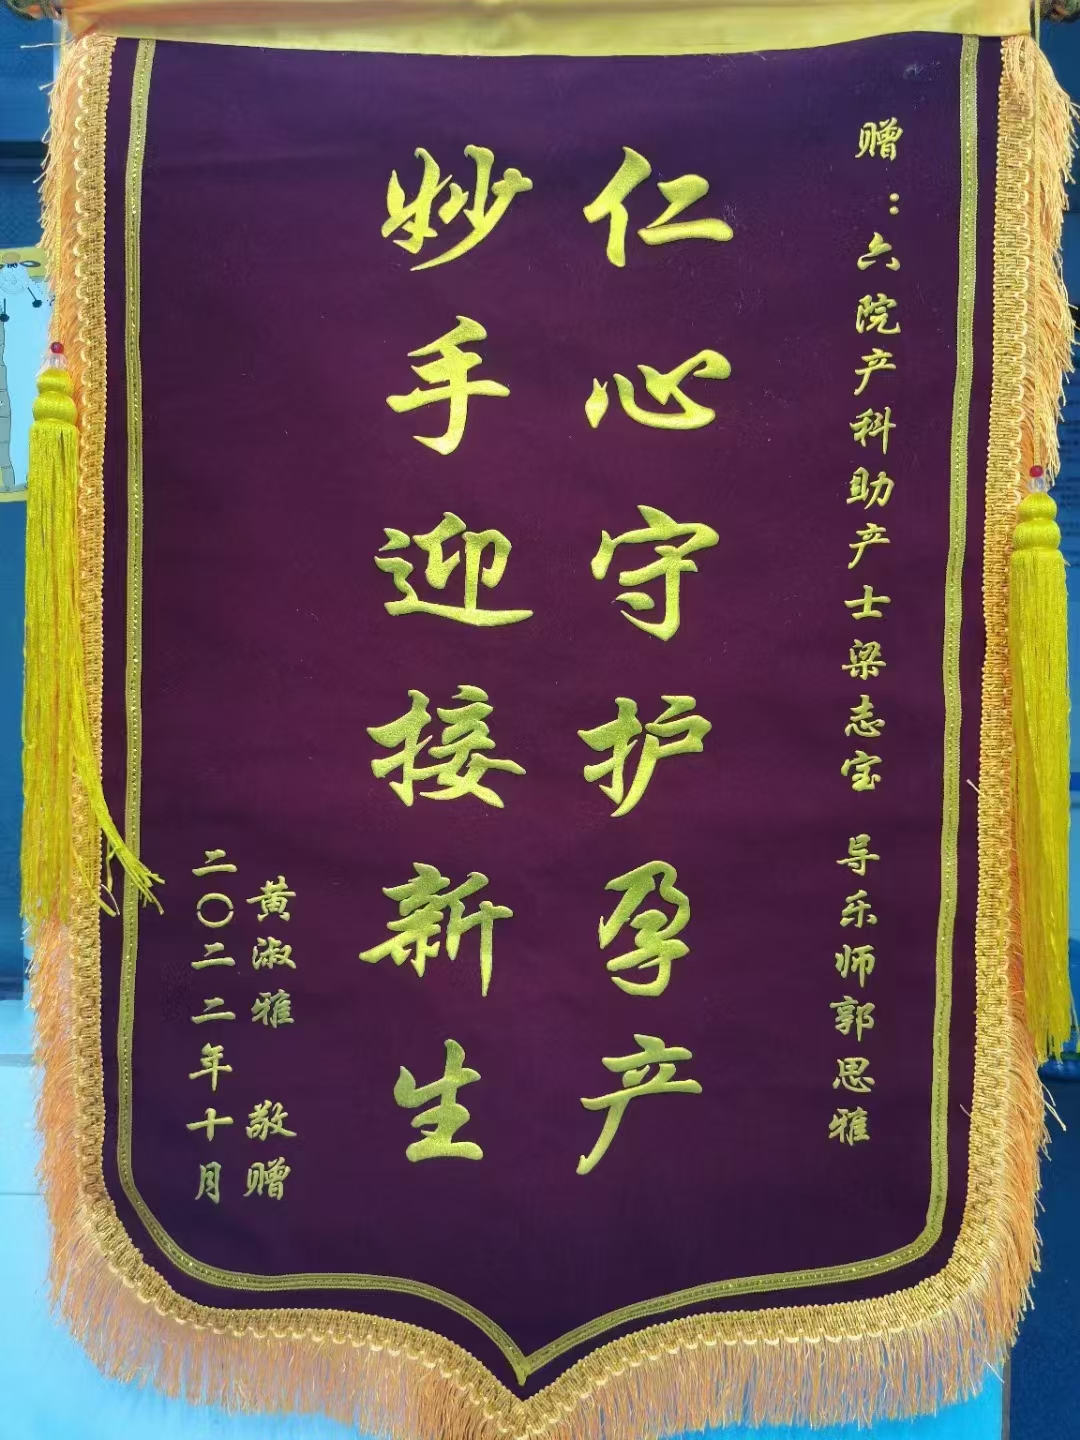 赠：六院产科助产士梁志宝 导乐师郭思雅
仁心守护孕产
妙手迎接新生
黄淑雅 敬赠
二〇二二年十月